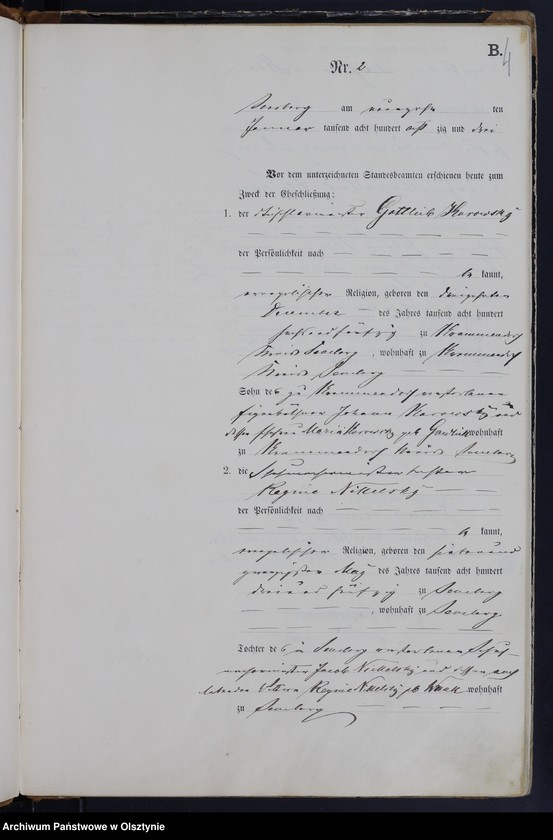 B. 4
Nr. 2
Sensburg am neunzehn ten
Januar tausend acht hundert acht zig und drei
Vor dem unterzeichneten Standesbeamten erschienen heute zum
Zweck der Eheschließung:
1. der Tischlermeister Gottlieb Karowsky
der Persönlichkeit nach
be kannt,
evangelischer Religion, geboren den dreizehnten
Dezember des Jahres tausend acht hundert
zu
Kreis Sensburg, wohnhaft zu
Kreis Sensburg
Sohn des zu verstorbenen
Eigenkäthners Johann Karowsky und
dessen Ehefrau Maria Karowsky geb wohnhaft
zu Kreis Sensburg
2. die
Regine Nikelsky
der Persönlichkeit nach
be kannt,
evangelischer Religion, geboren den sieben und
zwanzigsten May des Jahres tausend acht hundert
drei und fünfzig zu Sensburg
, wohnhaft zu Sensburg
Tochter des in Sensburg verstorbenen Schuh-
machermeister Jacob Nikelsky und dessen noch
lebenden Regine Nikelsky geb wohnhaft
zu Sensburg
Archiwum Państwowe w Olsztynie